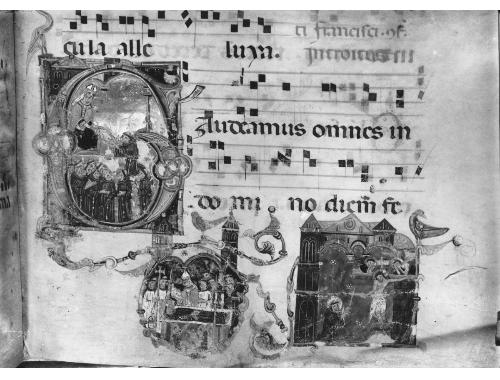 cula alle luya.
ti francisci.
Introitus
Gaudeamus omnes in
do mi no diem fe